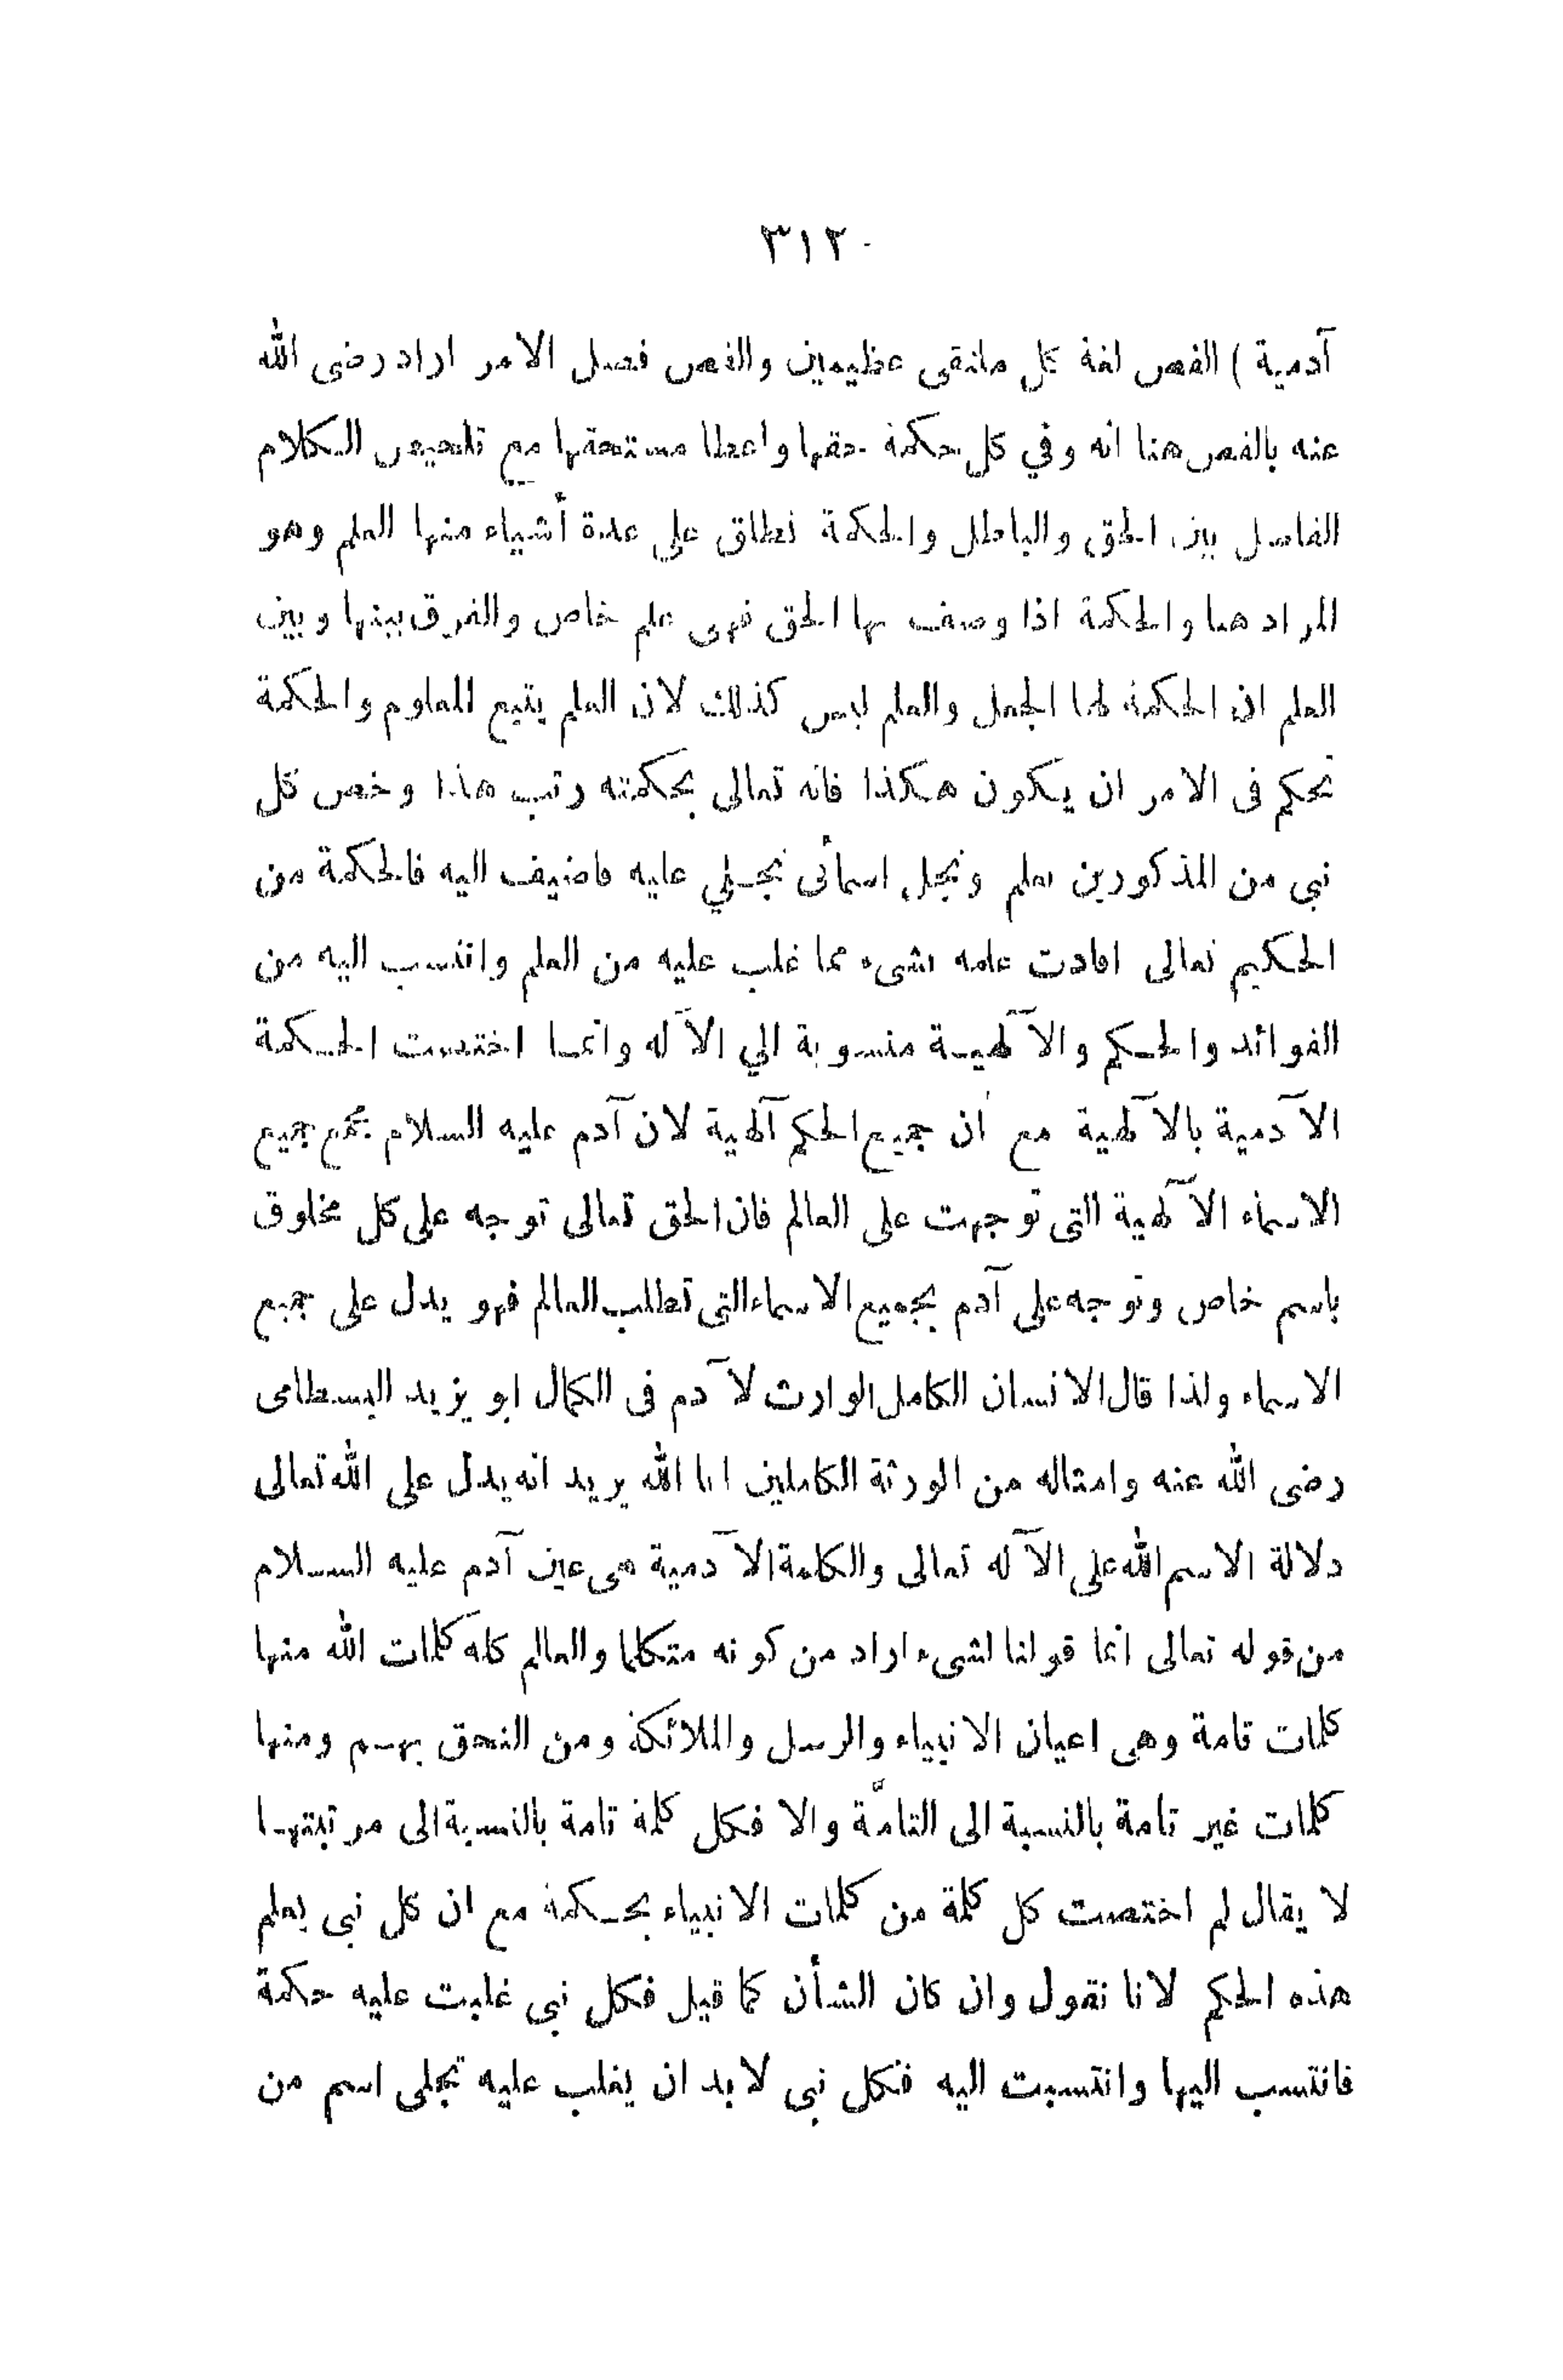 ٣١٢
آدمية ) الفص لغة كل ملتقى عظيمين والفص فصل الامر اراد رضى الله
عنه بالفص هنا انه وفي كل حكمة حقها واعطا مستحقها مع تلخيص الكلام
الفاصل بين الحق والباطل والحكمة تطلق على عدة أشياء منها العلم وهو
المراد هنا والحكمة اذا وصف بها الحق فهى علم خاص والفرق بينها وبين
العلم ان الحكمة لها الجعل والعلم ليس كذلك لان العلم يتبع المعلوم والحكمة
تحكم فى الامر ان يكون هكذا فانه تعالى بحكمته رتب هذا وخص كل
نبى من المذكورين بعلم وتجل اسمأئى تجلي عليه فاضيف اليه فالحكمة من
الحكيم تعالى افادت علمه بشىء مما غلب عليه من العلم وانتسب اليه من
الفوائد والحكم والآلهية منسوبة الي الآله وانما اختصت الحكمة
الآدمية بالآلهية مع ان جميع الحكم آلهية لان آدم عليه السلام مجمع جميع
الاسماء الآلهية التى توجهت على العالم فان الحق تعالى توجه على كل مخلوق
باسم خاص وتوجه على آدم بجميع الاسماء التى تطلب العالم فهو يدل على جميع
الاسماء ولذا قال الانسان الكامل الوارث لآدم فى الكمال ابو يزيد البسطامى
رضى الله عنه وامثاله من الورثة الكاملين انا الله يريد انه يدل على الله تعالى
دلالة الاسم الله على الآله تعالى والكلمة الآدمية هى عين آدم عليه السلام
من قوله تعالى انما قولنا لشىء اراد من كونه متكلما والعالم كله كلمات الله منها
كلمات تامة وهى اعيان الانبياء والرسل والملائكة ومن التحق بهم ومنها
كلمات غير تامة بالنسبة الى التامّة والا فكل كلمة تامة بالنسبة الى مرتبتها
لا يقال لم اختصت كل كلمة من كلمات الانبياء بحكمة مع ان كل نبى يعلم
هذه الحكم لانا نقول وان كان الشأن كما قيل فكل نبى غلبت عليه حكمة
فانتسب اليها وانتسبت اليه فكل نبى لابد ان يغلب عليه تجلى اسم من